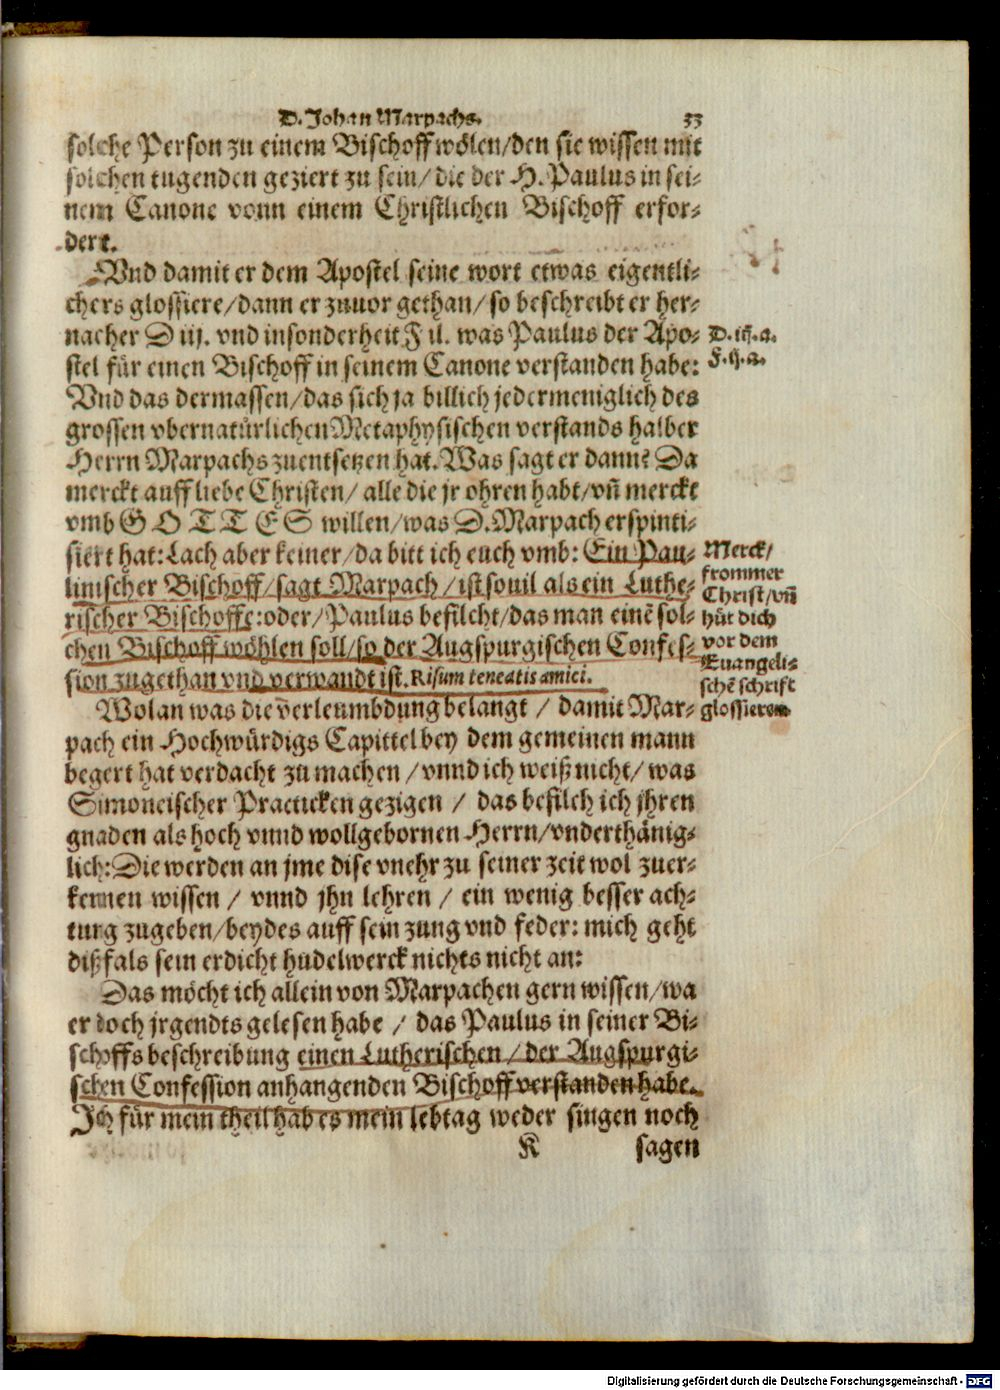 D. Johan Marpachs. 33
solche Person zu einem Bischoff wölen/den sie wissen mit
solchen tugenden geziert zu sein/die der H. Paulus in sei-
nem Canone vonn einem Christlichen Bischoff erfor-
dert.
Vnd damit er dem Apostel seine wort etwas eigentli-
chers glossiere/dann er zuuor gethan/so beschreibt er her-
nacher D iij. vnd insonderheit F ij. was Paulus der Apo-
stel für einen Bischoff in seinem Canone verstanden habe:
Vnd das dermassen/das sich ja billich jedermeniglich des
grossen vbernatürlichen Metaphysischen verstands halber
Herrn Marpachs zuentsetzen hat. Was sagt er dann? Da
merckt auff liebe Christen/ alle die jr ohren habt/vñ merckt
vmb GOTTES willen/was D. Marpach erspinti-
siert hat: Lach aber keiner/da bitt ich euch vmb: Ein Pau-
linischer Bischoff/sagt Marpach/ist souil als ein Luthe-
rischer Bischoffe: oder/Paulus befilcht/das man einē sol-
chen Bischoff wöhlen soll/so der Augspurgischen Confes-
sion zugethan vnd verwandt ist. Risum teneatis amici.
Wolan was die verleumbdung belangt / damit Mar-
pach ein Hochwürdigs Capittel bey dem gemeinen mann
begert hat verdacht zu machen /vnnd ich weiß nicht/ was
Simoneischer Practicken gezigen / das befilch ich jhren
gnaden als hoch vnnd wollgebornen Herrn/vnderthänig-
lich: Die werden an jme dise vnehr zu seiner zeit wol zuer-
kennen wissen / vnnd jhn lehren / ein wenig besser ach-
tung zugeben/beydes auff sein zung vnd feder: mich geht
dißfals sein erdicht hudelwerck nichts nicht an:
Das möcht ich allein von Marpachen gern wissen/wa
er doch jrgendts gelesen habe / das Paulus in seiner Bi-
schoffs beschreibung einen Lutherischen/der Augspurgi-
schen Confession anhangenden Bischoff verstanden habe.
Ich für mein theil hab es mein lebtag weder singen noch
K sagen
D. iij. a.
F. ij. a.
Merck/
frommer
Christ/vñ
hüt dich
vor dem
Euangeli-
schē schrifft
glossieren
Digitalisierung gefördert durch die Deutsche Forschungsgemeinschaft - DFG